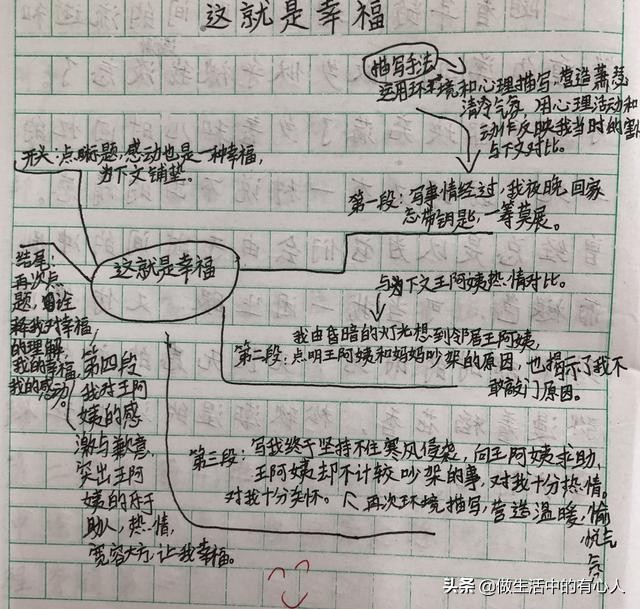 这就是幸福
描写手法
运用环境和心理描写，营造萧瑟
清冷气氛 用心理活动和
动作反映我当时的害
与下文对比。
开头：点明标题，感动也是一种幸福，
为下文铺垫。
第一段：写事情经过，我夜晚回家
忘带钥匙，一筹莫展。
这就是幸福
与下文王阿姨热情对比。
我由昏暗的灯光想到邻居王阿姨，
第二段：点明王阿姨和妈妈吵架的原因，也揭示了我不
敢敲门原因。
结尾：
再次点
题，诠
释我对幸福，
的理解，
我的幸福，
我的感动。
第四段
我对王阿
姨的感
激与歉意，
突出王阿
姨的乐于
助人，热情，
宽容大方，让我幸福。
第三段：写我终于坚持不住寒风侵袭，向王阿姨求助，
王阿姨却不计较吵架的事，对我十分热情。
对我十分关怀。再次环境描写，营造温暖，愉
悦气
氛
头条 @做生活中的有心人